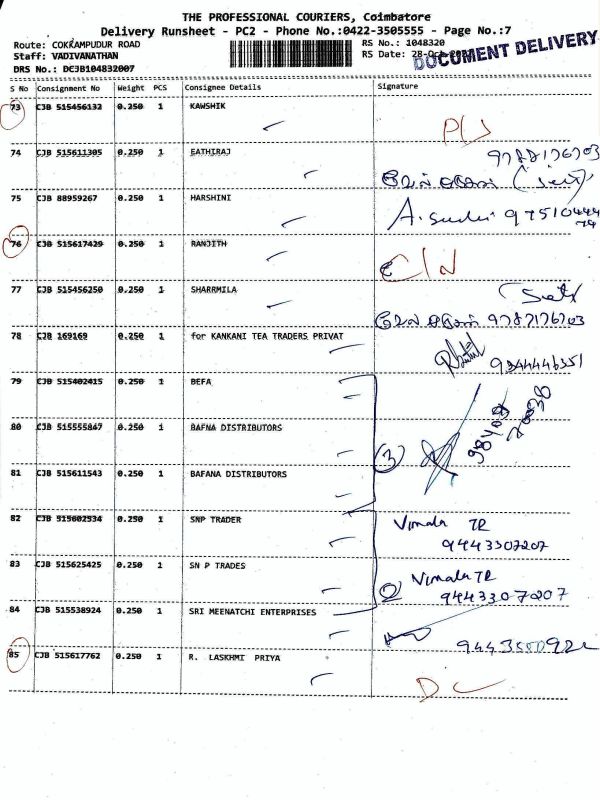 THE PROFESSIONAL COURIERS, Coimbatore
Delivery Runsheet - PC2 - Phone No.:0422-3505555 - Page No.:7
Route: COKRAMPUDUR ROAD RS No.: 1048320
Staff: VADIVANATHAN RS Date: 28-Oct
DOCUMENT DELIVERY
DRS No.: DCJB104832007
S No Consignment No Weight PCS Consignee Details Signature
73 CJB 515456132 0.250 1 KAWSHIK
74 CJB 515611305 0.250 1 EATHIRAJ 9787176703
75 CJB 88959267 0.250 1 HARSHINI
76 CJB 515617429 0.250 1 RANJITH C/N
77 CJB 515456250 0.250 1 SHARRMILA 9787176703
78 CJB 169169 0.250 1 for KANKANI TEA TRADERS PRIVAT 9344446351
79 CJB 515402415 0.250 1 BEFA
80 CJB 515555847 0.250 1 BAFNA DISTRIBUTORS 3
81 CJB 515611543 0.250 1 BAFANA DISTRIBUTORS
82 CJB 515602534 0.250 1 SNP TRADER Vimala TR
9443307207
83 CJB 515625425 0.250 1 SN P TRADES 2 Vimala TR
9443307207
84 CJB 515538924 0.250 1 SRI MEENATCHI ENTERPRISES
85 CJB 515617762 0.250 1 R. LASKHMI PRIYA DC